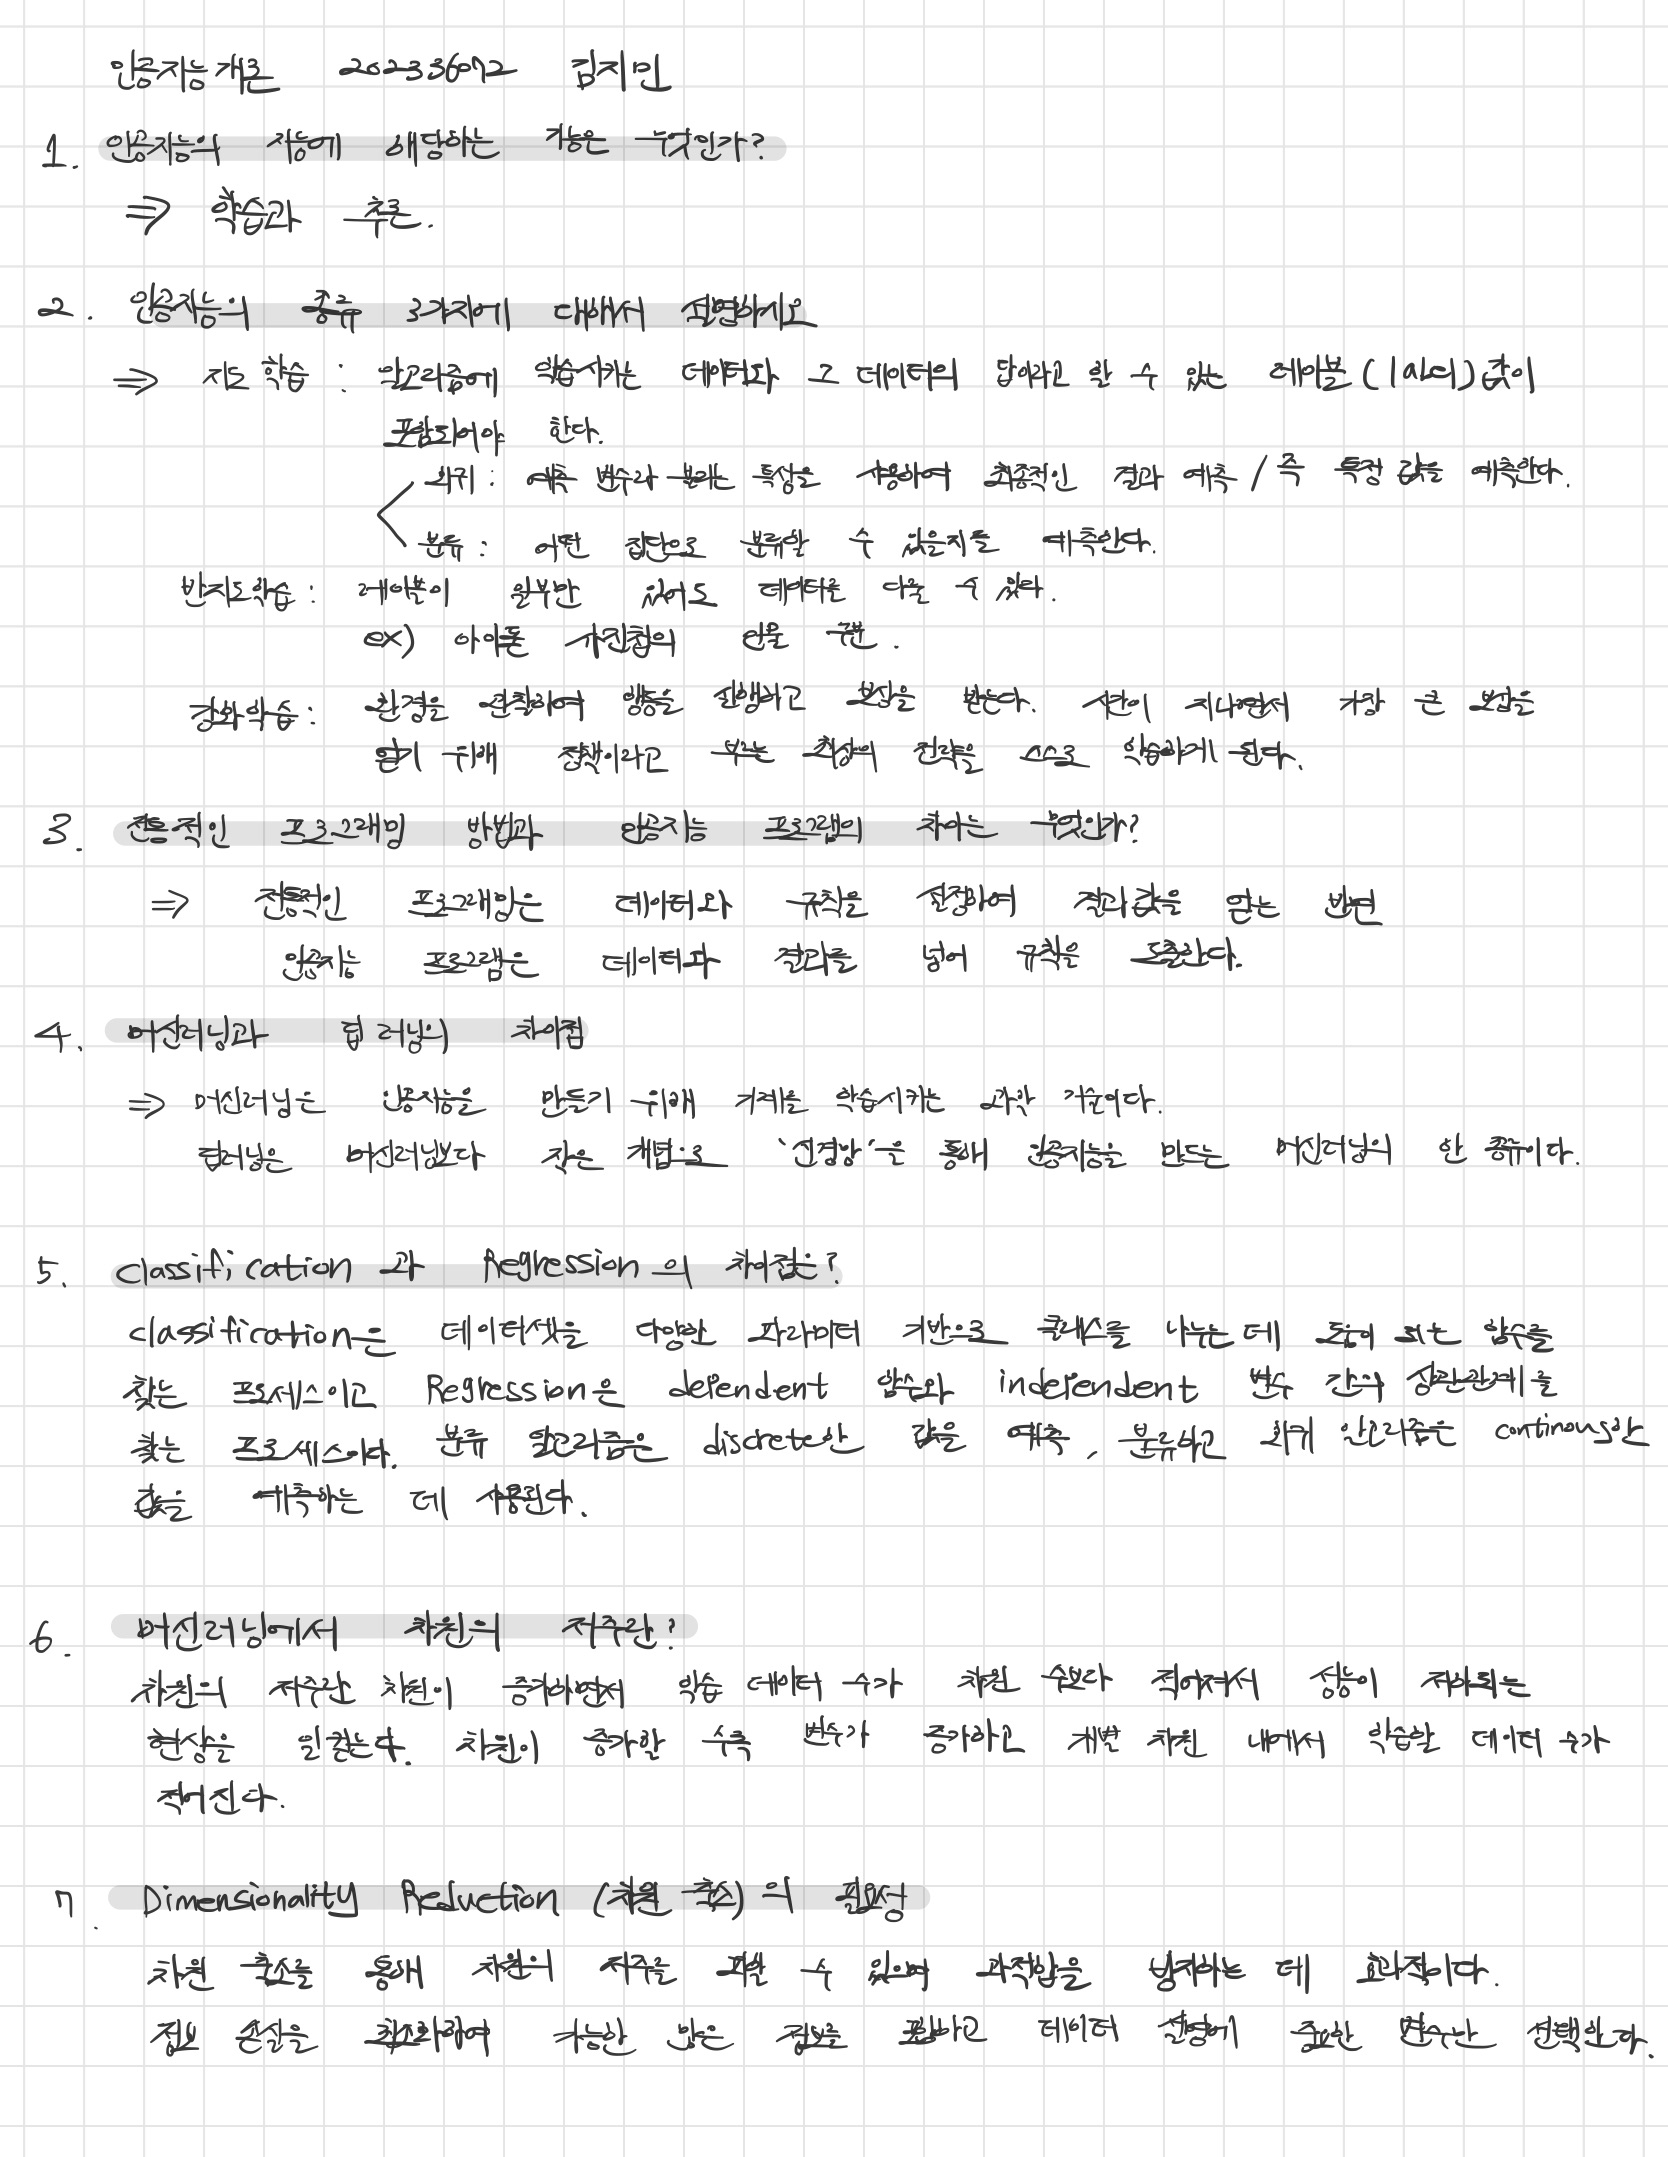 인공지능개론 202336072 김지민
1. 인공지능의 지능에 해당하는 기능은 무엇인가?
⇒ 학습과 추론.
2. 인공지능의 종류 3가지에 대해서 설명하시오
⇒ 지도 학습 : 알고리즘에 학습시키는 데이터와 그 데이터의 답이라고 할 수 있는 레이블 (label) 값이
포함되어야 한다.
회귀 : 예측 변수라 불리는 특성을 사용하여 최종적인 결과 예측 / 즉 특정 값을 예측한다.
분류 : 어떤 집단으로 분류할 수 있을지를 예측한다.
반지도학습 : 레이블이 일부만 있어도 데이터를 다룰 수 있다.
ex) 아이폰 사진첩의 인물 구분.
강화학습 : 환경을 관찰하여 행동을 실행하고 보상을 받는다. 시간이 지나면서 가장 큰 보상을
얻기 위해 정책이라고 부르는 최상의 전략을 스스로 학습하게 된다.
3. 전통적인 프로그래밍 방법과 인공지능 프로그램의 차이는 무엇인가?
⇒ 전통적인 프로그래밍은 데이터와 규칙을 설정하여 결과값을 얻는 반면
인공지능 프로그램은 데이터와 결과를 넣어 규칙을 도출한다.
4. 머신러닝과 딥 러닝의 차이점
⇒ 머신러닝은 인공지능을 만들기 위해 기계를 학습시키는 과학 기술이다.
딥러닝은 머신러닝보다 작은 개념으로 '신경망'을 통해 인공지능을 만드는 머신러닝의 한 종류이다.
5. classification 과 Regression 의 차이점은?
classification은 데이터셋을 다양한 파라미터 기반으로 클래스를 나누는 데 도움이 되는 함수를
찾는 프로세스이고 Regression은 dependent 함수와 independent 변수 간의 상관관계를
찾는 프로세스이다. 분류 알고리즘은 discrete한 값을 예측, 분류하고 회귀 알고리즘은 continous한
값을 예측하는 데 사용된다.
6. 머신러닝에서 차원의 저주란?
차원의 저주란 차원이 증가하면서 학습 데이터 수가 차원 수보다 적어져서 성능이 저하되는
현상을 일컫는다. 차원이 증가할 수록 변수가 증가하고 개별 차원 내에서 학습할 데이터 수가
적어진다.
7. Dimensionality Reduction (차원 축소) 의 필요성
차원 축소를 통해 차원의 저주를 피할 수 있으며 과적합을 방지하는 데 효과적이다.
정보 손실을 최소화하며 가능한 많은 정보를 포함하고 데이터 설명에 중요한 변수만 선택한다.